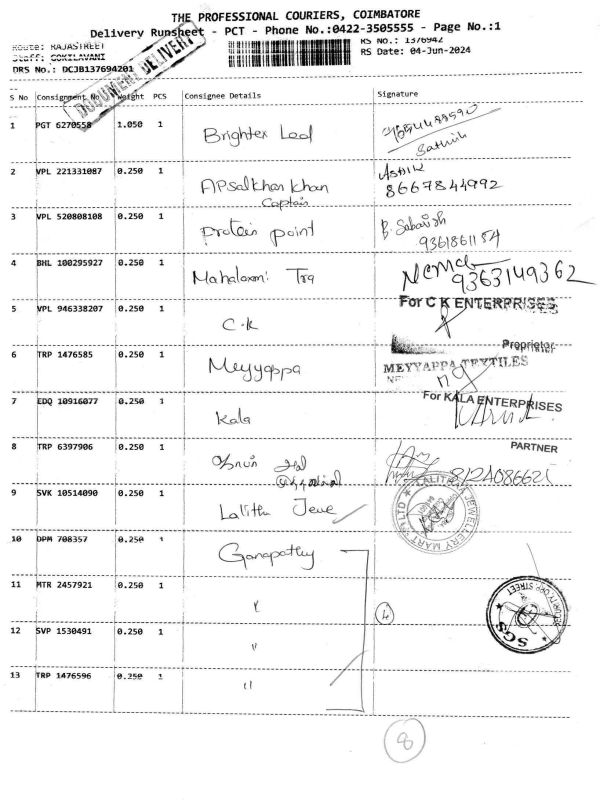 THE PROFESSIONAL COURIERS, COIMBATORE
Delivery Runsheet - PCT - Phone No.:0422-3505555 - Page No.:1
Route: RAJASTREET
RS No.: 1376942
Staff: GOKILAVANI
RS Date: 04-Jun-2024
DRS No.: DCJB137694201
DOCUMENT DELIVERY
S No Consignment No Weight PCS Consignee Details Signature
1 PGT 6270558 1.050 1 Brightex Led
Sathish
2 VPL 221331087 0.250 1 APsalkhan Khan 8667844992
Captain
3 VPL 520808108 0.250 1 Protein point B. Sabarish
9361861154
4 BHL 100295927 0.250 1 Mahalaxmi Tra 9363149362
For C K ENTERPRISES
5 VPL 946338207 0.250 1 C.K
Proprietor
6 TRP 1476585 0.250 1 Meyyappa MEYYAPPA TEXTILES
For KALA ENTERPRISES
7 EDQ 10916077 0.250 1 Kala
PARTNER
8 TRP 6397906 0.250 1
9 SVK 10514090 0.250 1 Lalitha Jewe
LALITHA JEWELLERY MART P LTD
10 DPM 708357 0.250 1 Ganapathy
11 MTR 2457921 0.250 1 "
4
12 SVP 1530491 0.250 1 "
SGS
13 TRP 1476596 0.250 1 "
8